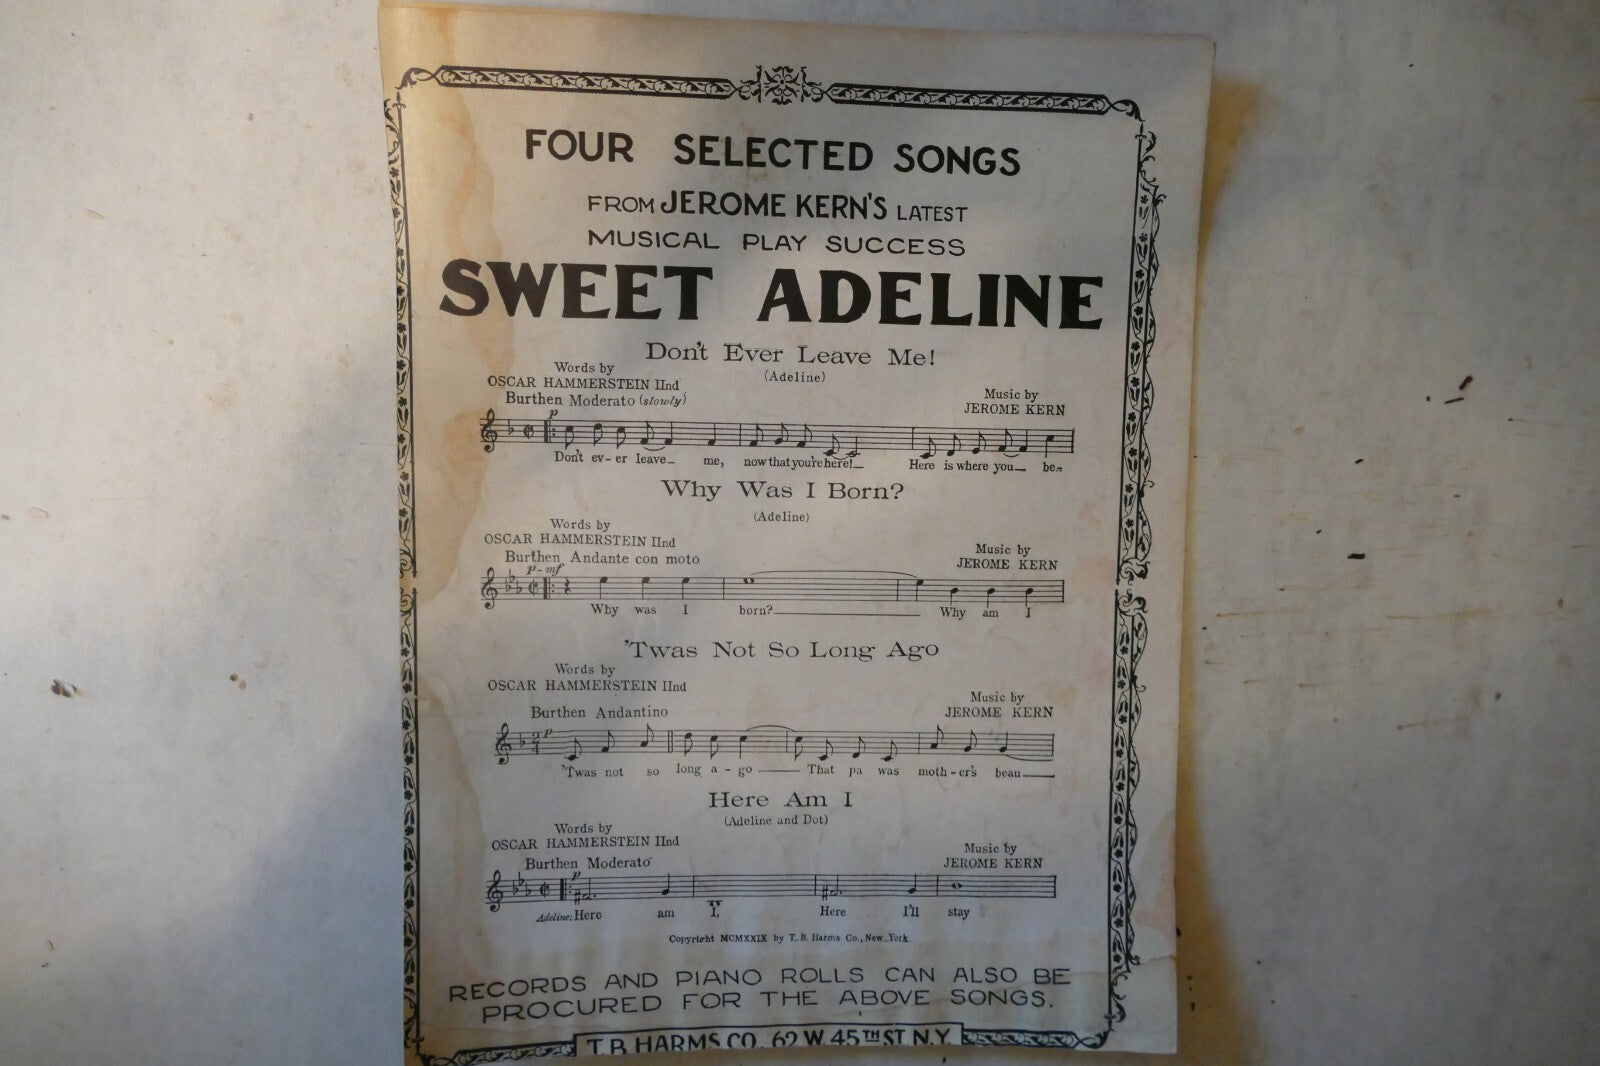 FOUR SELECTED SONGS
FROM JEROME KERN'S LATEST
MUSICAL PLAY SUCCESS
SWEET ADELINE
Don't Ever Leave Me!
(Adeline)
Words by
OSCAR HAMMERSTEIN IInd
Burthen Moderato (slowly)
Music by
JEROME KERN
p
Don't ev-er leave_ me, now that you're here!_ Here is where you_ be-
Why Was I Born?
(Adeline)
Words by
OSCAR HAMMERSTEIN IInd
Burthen Andante con moto
Music by
JEROME KERN
p-mf
Why was I born?_ Why am I
'Twas Not So Long Ago
Words by
OSCAR HAMMERSTEIN IInd
Burthen Andantino
Music by
JEROME KERN
p
'Twas not so long a-go_ That pa was moth-er's beau_
Here Am I
(Adeline and Dot)
Words by
OSCAR HAMMERSTEIN IInd
Burthen Moderato
Music by
JEROME KERN
p
Adeline: Here am I, Here I'll stay
Copyright MCMXXIX by T. B. Harms Co., New York
RECORDS AND PIANO ROLLS CAN ALSO BE
PROCURED FOR THE ABOVE SONGS.
T.B. HARMS CO. 62 W 45TH ST N.Y.